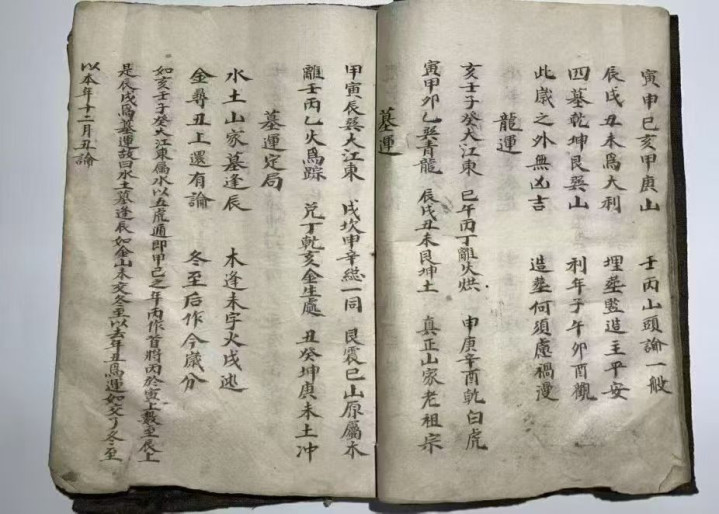 寅申巳亥甲庚山 壬丙山頭論一般
辰戌丑未為大利 埋葬豎造主平安
四墓乾坤艮巽山 利年子午卯酉觀
此歲之外無凶吉 造葬何須慮禍漫
龍運
亥壬子癸大江東 巳午丙丁離火烘 申庚辛酉乾白虎
寅甲卯乙巽青龍 辰戌丑未艮坤土 真正山家老祖宗
墓運
甲寅辰巽大江東 戌坎申辛總一同 艮震巳山原屬木
離壬丙乙火為踪 兌丁乾亥金生處 丑癸坤庚未土冲
墓運定局
水土山家墓逢辰 木逢未字火戌逃
金尋丑上還有論 冬至后作今歲分
如亥壬子癸大江東屬水以五虎遁即甲己之年丙作首將丙於寅上數至辰上
是辰戌為墓運故曰水土墓逢辰如金山未交冬至以去年丑為運如交了冬至
以本年十二月丑論